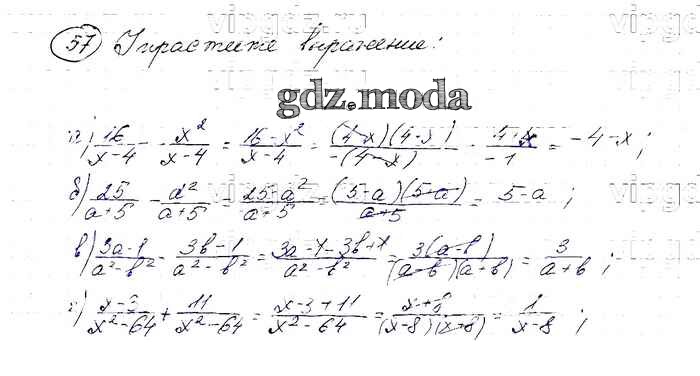 57 Упростите выражение:
gdz.moda
а) 16/(x-4) - x²/(x-4) = (16-x²)/(x-4) = (4-x)(4-x)/-(4-x) = (4+x)/-1 = -4-x;
б) 25/(a+5) - a²/(a+5) = (25-a²)/(a+5) = (5-a)(5+a)/(a+5) = 5-a;
в) (3a-1)/(a²-b²) - (3b-1)/(a²-b²) = (3a-1-3b+1)/(a²-b²) = 3(a-b)/(a-b)(a+b) = 3/(a+b);
г) (x-3)/(x²-64) + 11/(x²-64) = (x-3+11)/(x²-64) = (x+8)/(x-8)(x+8) = 1/(x-8);